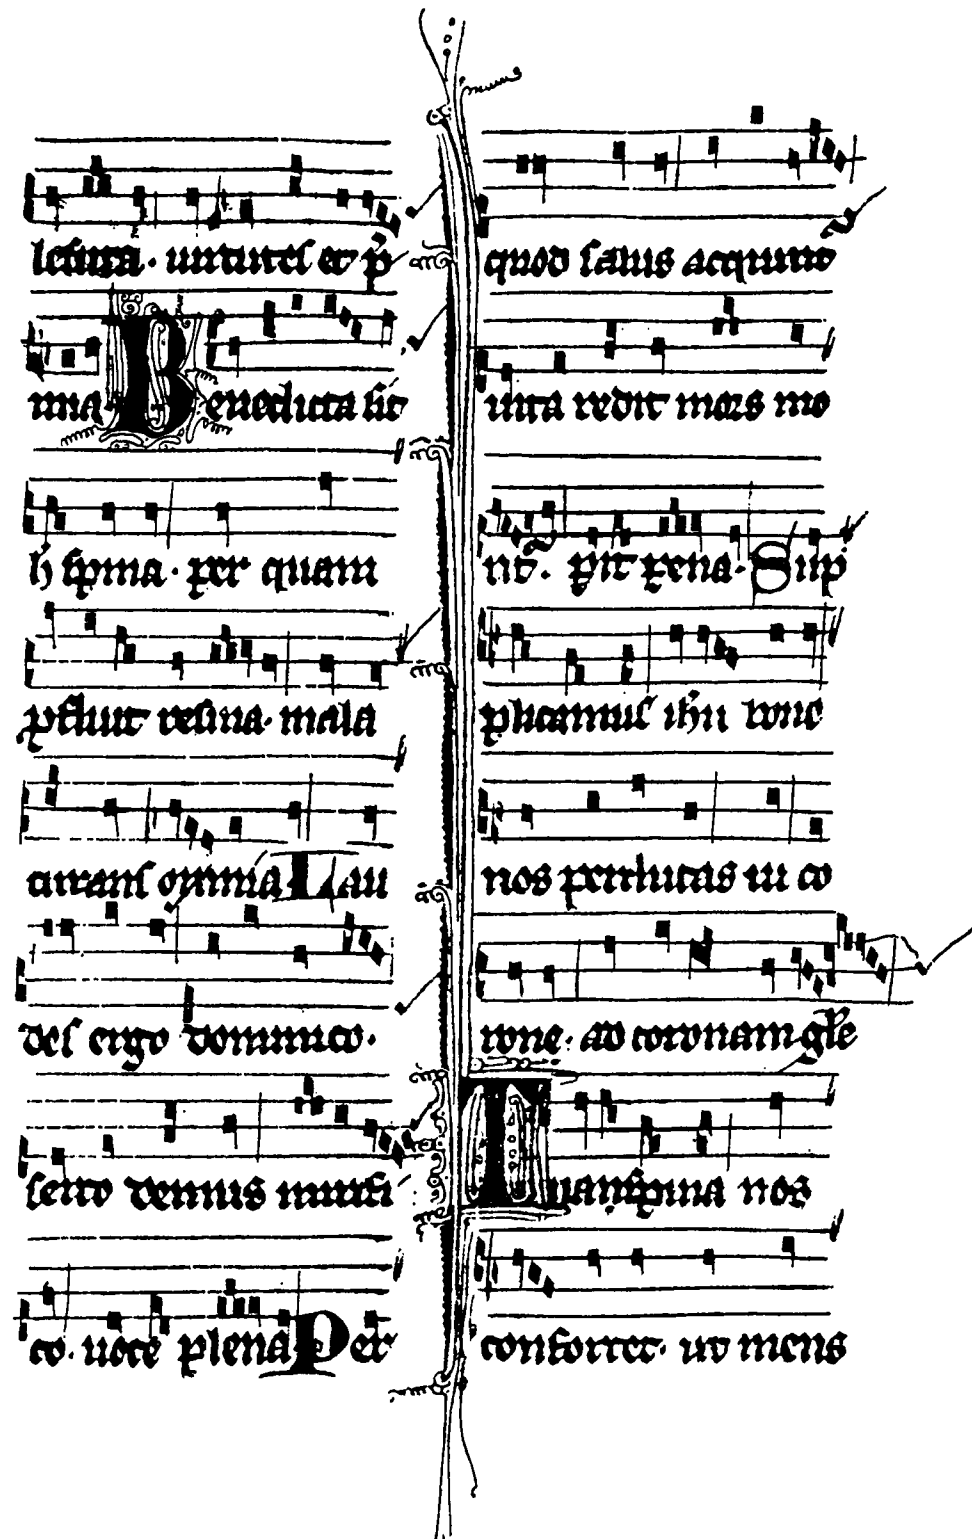 lesura. uirtutes et p̄
mna Benedicta sit
h̄ spina. per quam
ꝓfluit resina. mala
curans omnia Lau
des ergo domino.
sexto demus mirifi
co. uoce plena Per
quod salus acquirit᷑
uita redit mors mo
rit᷑. ꝑit pena. Sup
plicamus ihū bone
nos perducas in co
rone. ad coronam gl̄e
Tua nos
confortet. ut mens